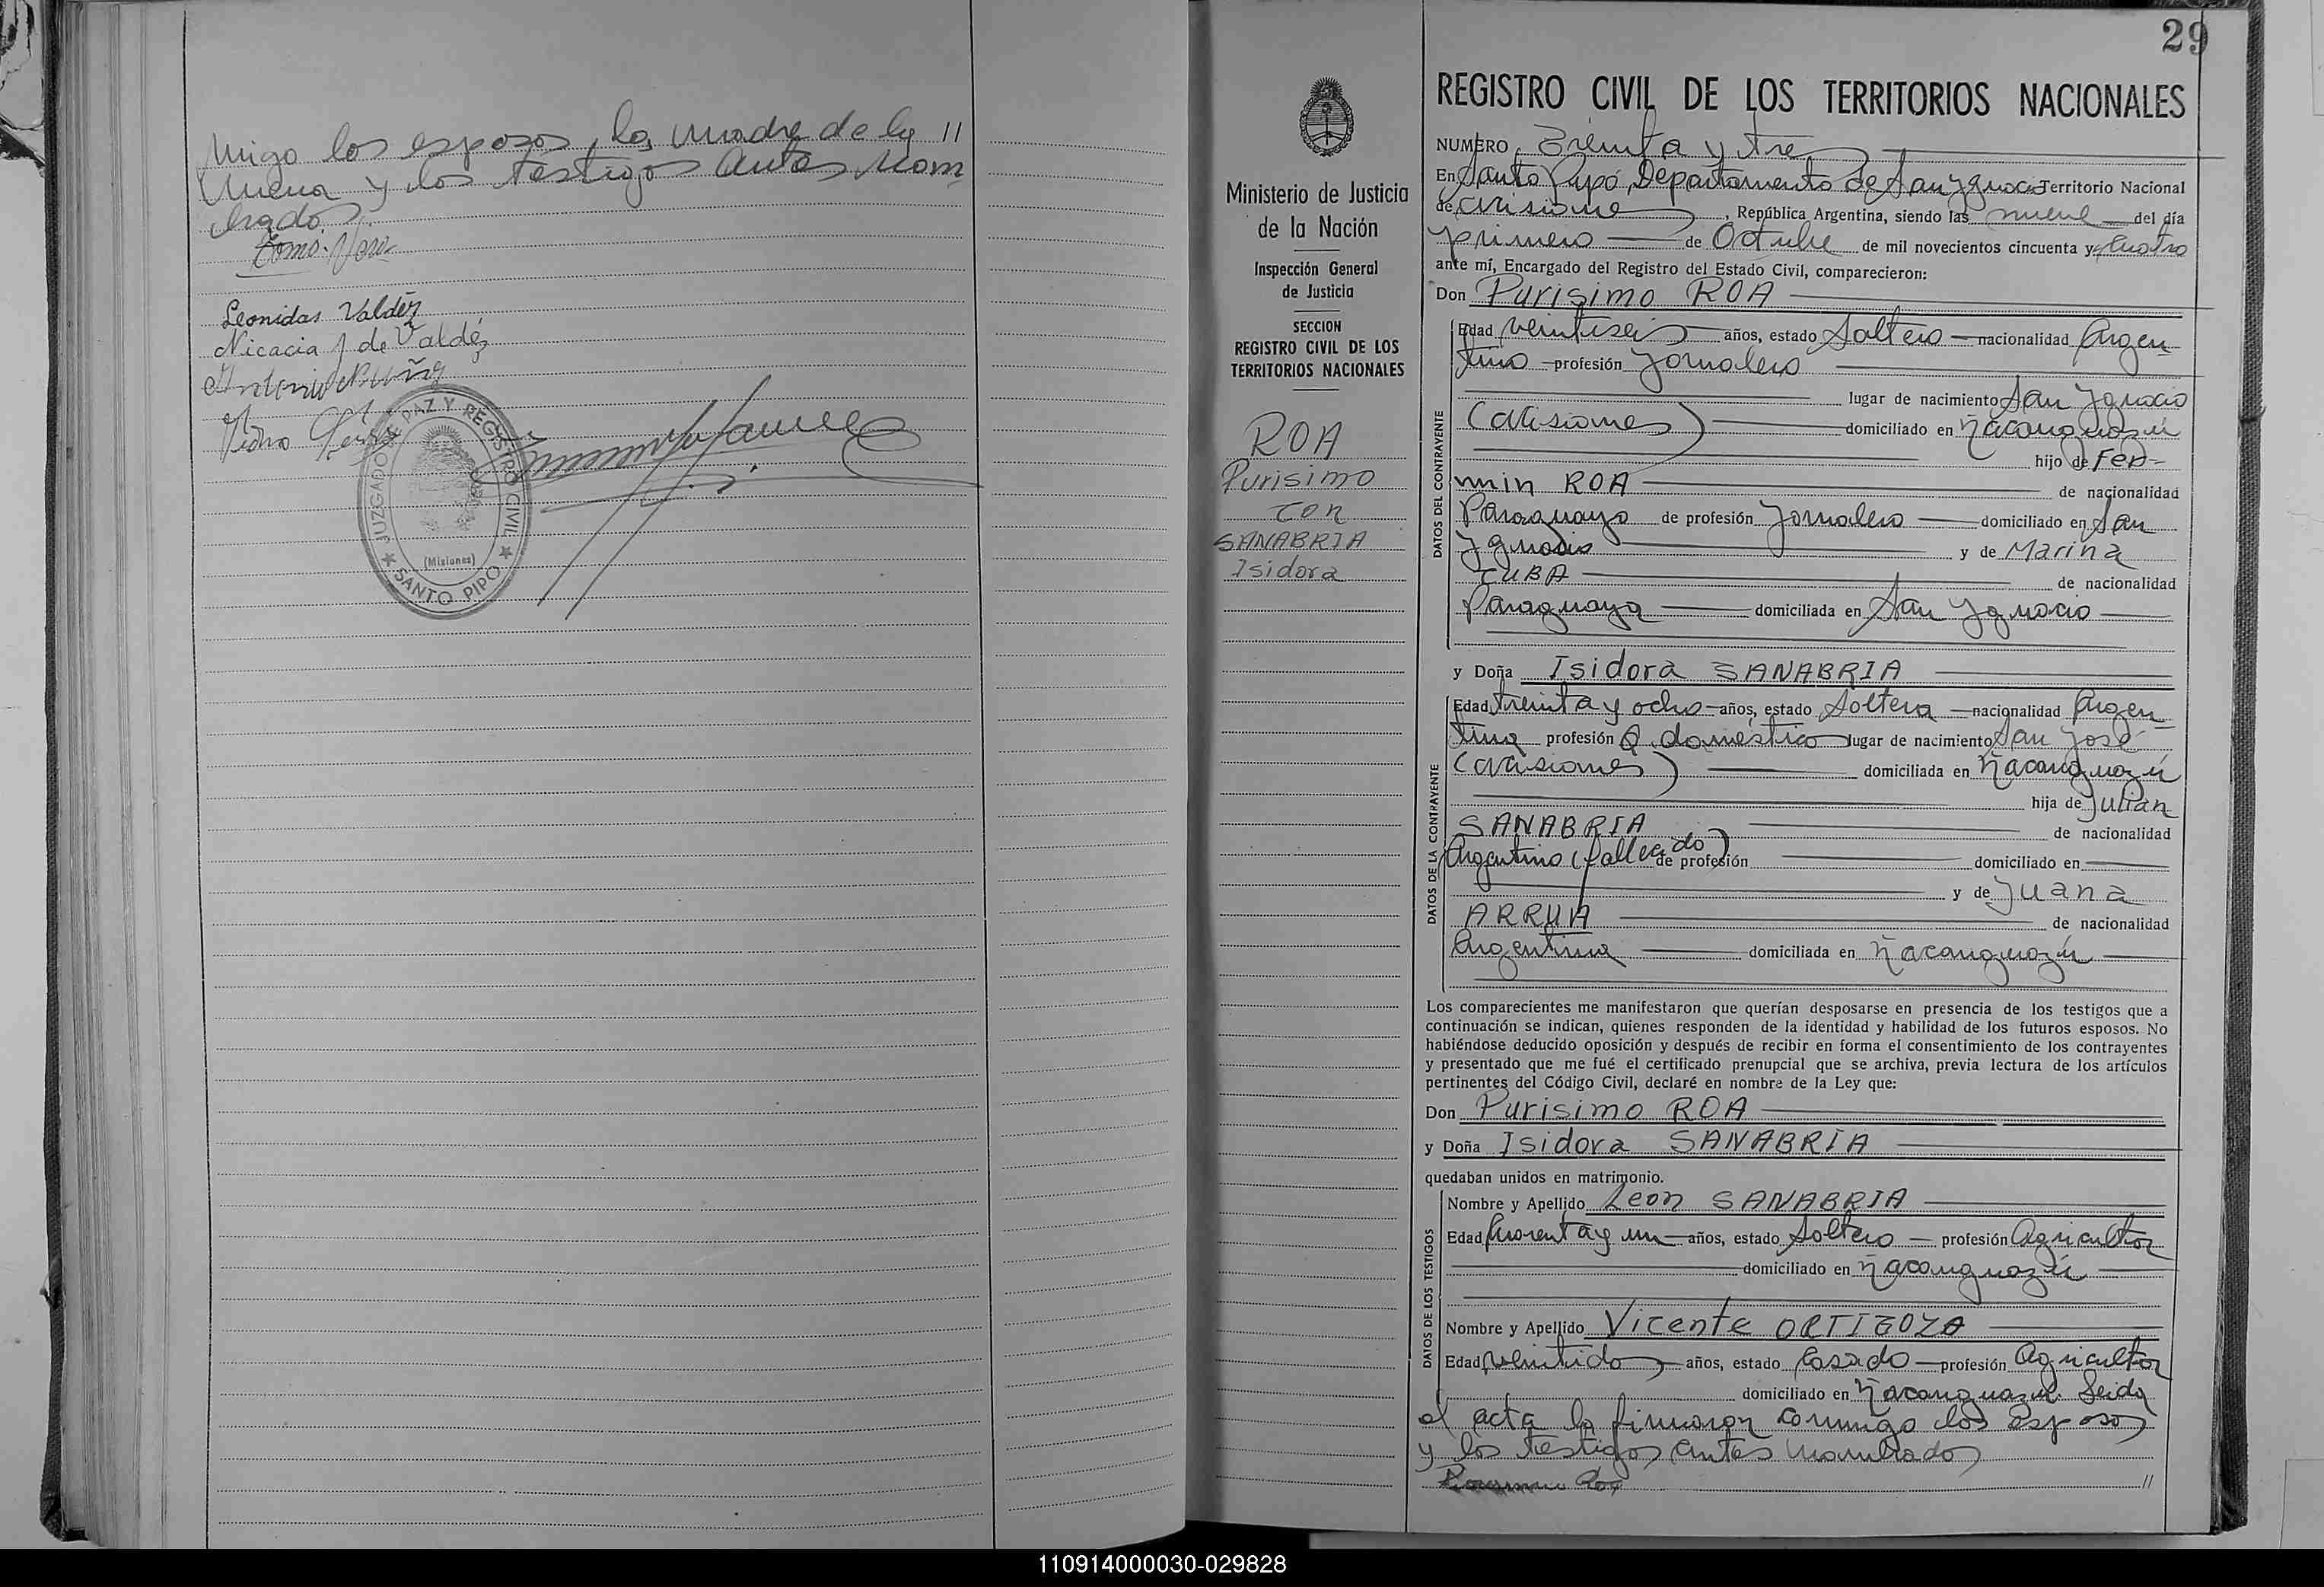 migo los esposos, la madre de la //
menor y los testigos antes nom
brados.
Leonidas Valdéz
Nicacia J de Valdéz
Pedro
JUZGADO DE PAZ Y REGISTRO CIVIL
(Misiones)
SANTO PIPO
29
Ministerio de Justicia
de la Nación
Inspección General
de Justicia
SECCION
REGISTRO CIVIL DE LOS
TERRITORIOS NACIONALES
ROA
Purisimo
con
SANABRIA
Isidora
REGISTRO CIVIL DE LOS TERRITORIOS NACIONALES
NUMERO Treinta y tres
En Santo Pipó, Departamento de San Ygnacio Territorio Nacional
de Misiones, República Argentina, siendo las nueve del día
primero de Octubre de mil novecientos cincuenta y cuatro
ante mí, Encargado del Registro del Estado Civil, comparecieron:
Don Purisimo ROA
DATOS DEL CONTRAYENTE
Edad veintiseis años, estado Soltero nacionalidad Argen
tino profesión Jornalero
lugar de nacimiento San Ygnacio
(Misiones) domiciliado en Ñacanguazú
hijo de Fer-
min ROA de nacionalidad
Paraguayo de profesión Jornalero domiciliado en San
Ygnacio y de Marina
CUBA de nacionalidad
Paraguaya domiciliada en San Ygnacio
y Doña Isidora SANABRIA
DATOS DE LA CONTRAYENTE
Edad treinta y ocho años, estado Soltera nacionalidad Argen-
tina profesión Q. doméstico lugar de nacimiento San José
(Misiones) domiciliada en Ñacanguazú
hija de Julian
SANABRIA de nacionalidad
Argentino (fallecido) de profesión domiciliado en
y de Juana
ARRUA de nacionalidad
Argentina domiciliada en Ñacanguazú
Los comparecientes me manifestaron que querían desposarse en presencia de los testigos que a
continuación se indican, quienes responden de la identidad y habilidad de los futuros esposos. No
habiéndose deducido oposición y después de recibir en forma el consentimiento de los contrayentes
y presentado que me fué el certificado prenupcial que se archiva, previa lectura de los artículos
pertinentes del Código Civil, declaré en nombre de la Ley que:
Don Purisimo ROA
y Doña Isidora SANABRIA
quedaban unidos en matrimonio.
DATOS DE LOS TESTIGOS
Nombre y Apellido Leon SANABRIA
Edad Cuarenta y un años, estado Soltero profesión Agricultor
domiciliado en Ñacanguazú
Nombre y Apellido Vicente ORTIGOZA
Edad veintidos años, estado Casado profesión Agricultor
domiciliado en Ñacanguazú. Leida
el acta la firmaron conmigo los esposos
y los testigos antes nombrados
//
110914000030-029828